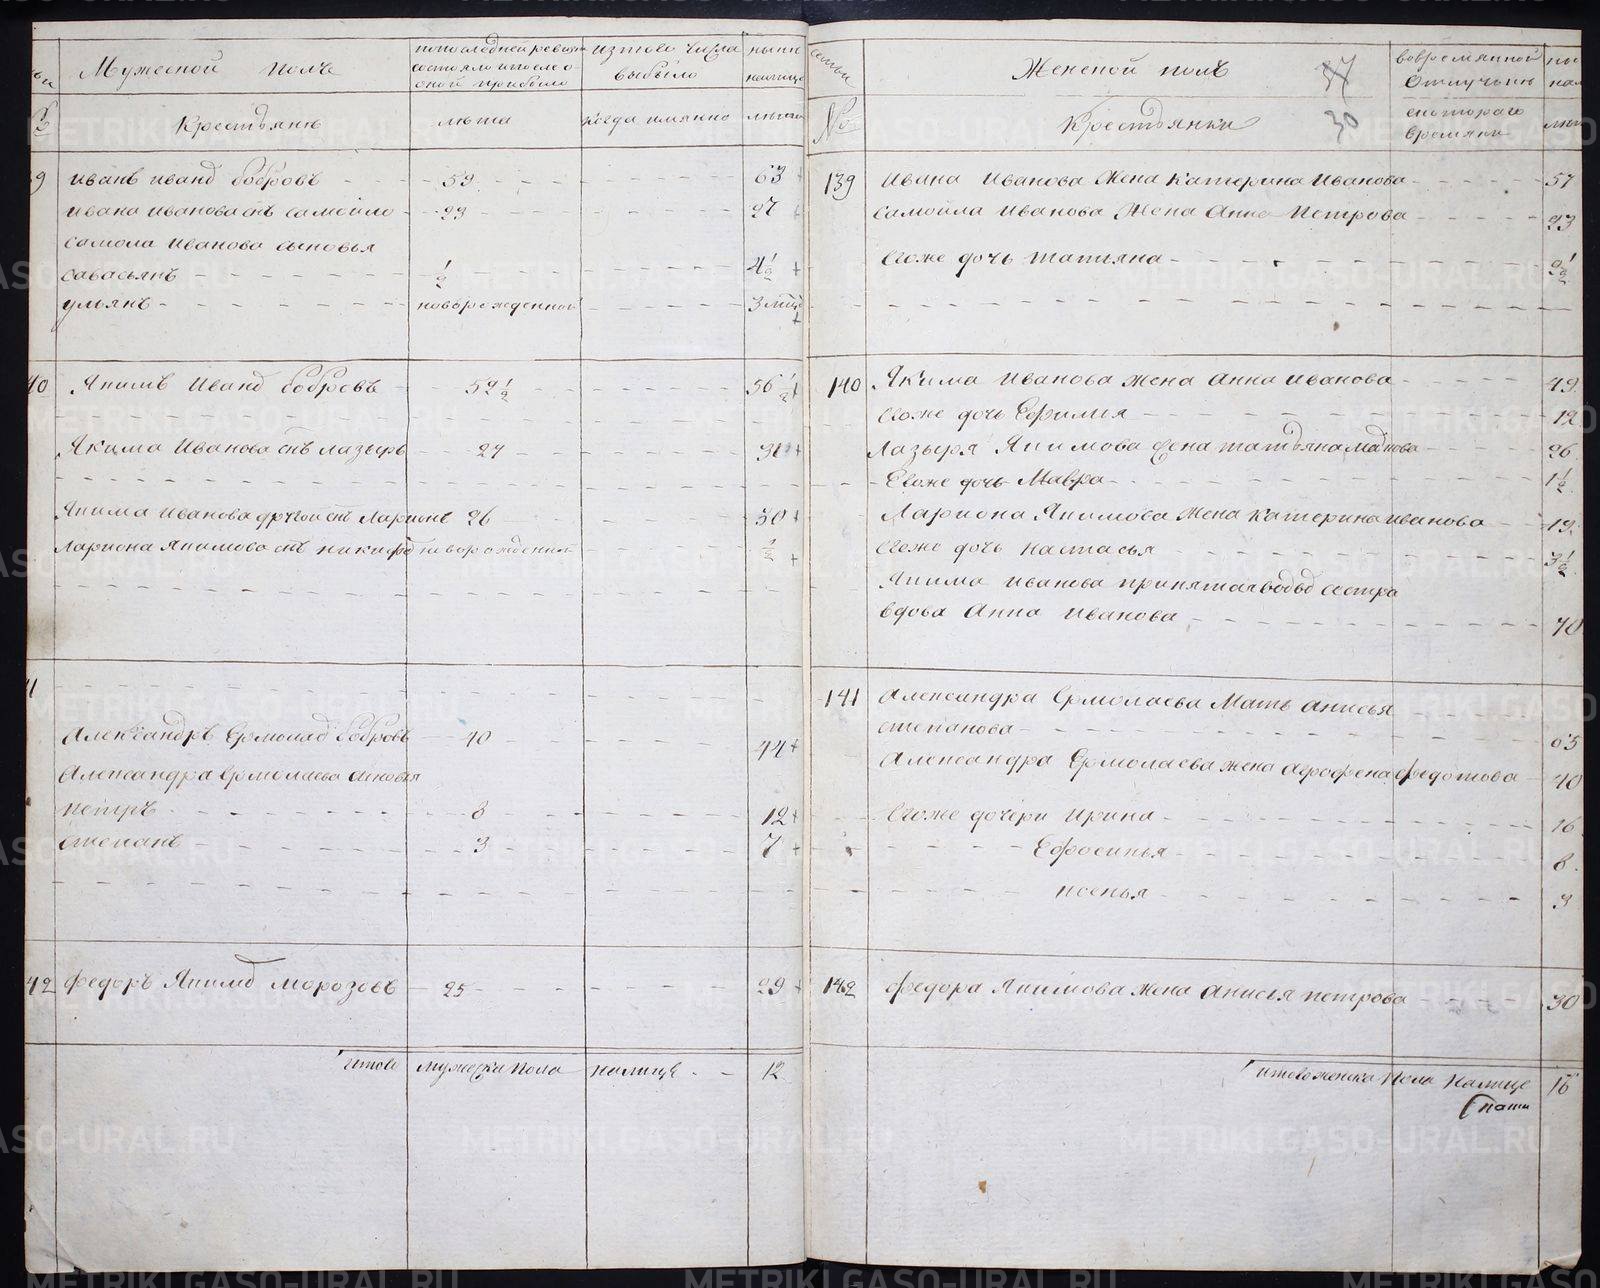 Мужеской полъ
по последней ревизии состояло и после оной прибыло
из того числа выбыло
ныне налице
Крестьяне
лета
когда имянно
лета
9 иванъ иванов бобровъ 59 63
ивана иванова снъ самойло 23 27
самола иванова сыновья
савасьянъ 1/2 4 1/2
ульянъ новорожденной 3 мца
40 Якимъ Иванов бобровъ 52 1/2 56 1/2
Якима Иванова снъ лазырь 27 31
Якима Иванова другои снъ Ларионъ 26 30
Лариона Якимова снъ никифор новорожденны 1/2
41
Александръ Ермолаев бобровъ 40 44
Александра Ермолаева сыновья
петръ 8 12
степанъ 3 7
42 Федоръ Якимов морозовъ 25 29
итого мужеска пола налице 12
Женской полъ
37
30
во временной отлучьке
№
Крестьянки
с которого времяни
139 Ивана Иванова жена катерина Иванова 57
самойла Иванова жена анна петрова 23
Егоже дочь татьяна 2 1/2
140 Якима иванова жена анна иванова 49
Егоже дочь Ефимия 12
Лазыря Якимова жена татьяна 26
Егоже дочь Мавра 1 1/2
Лариона Якимова жена катерина иванова 19
Егоже дочь настасья 3 1/2
Якима иванова принятая вдов сестра
вдова Анна Иванова 70
141 Александра Ермолаева Мать анисья
степанова 65
Александра Ермолаева жена аграфена федотова 40
Егоже дочери ирина 16
Ефросинья 8
ксенья 3
142 Федора Якимова жена анисья петрова 30
итого женска пола налице 16
METRIKI.GASO-URAL.RU